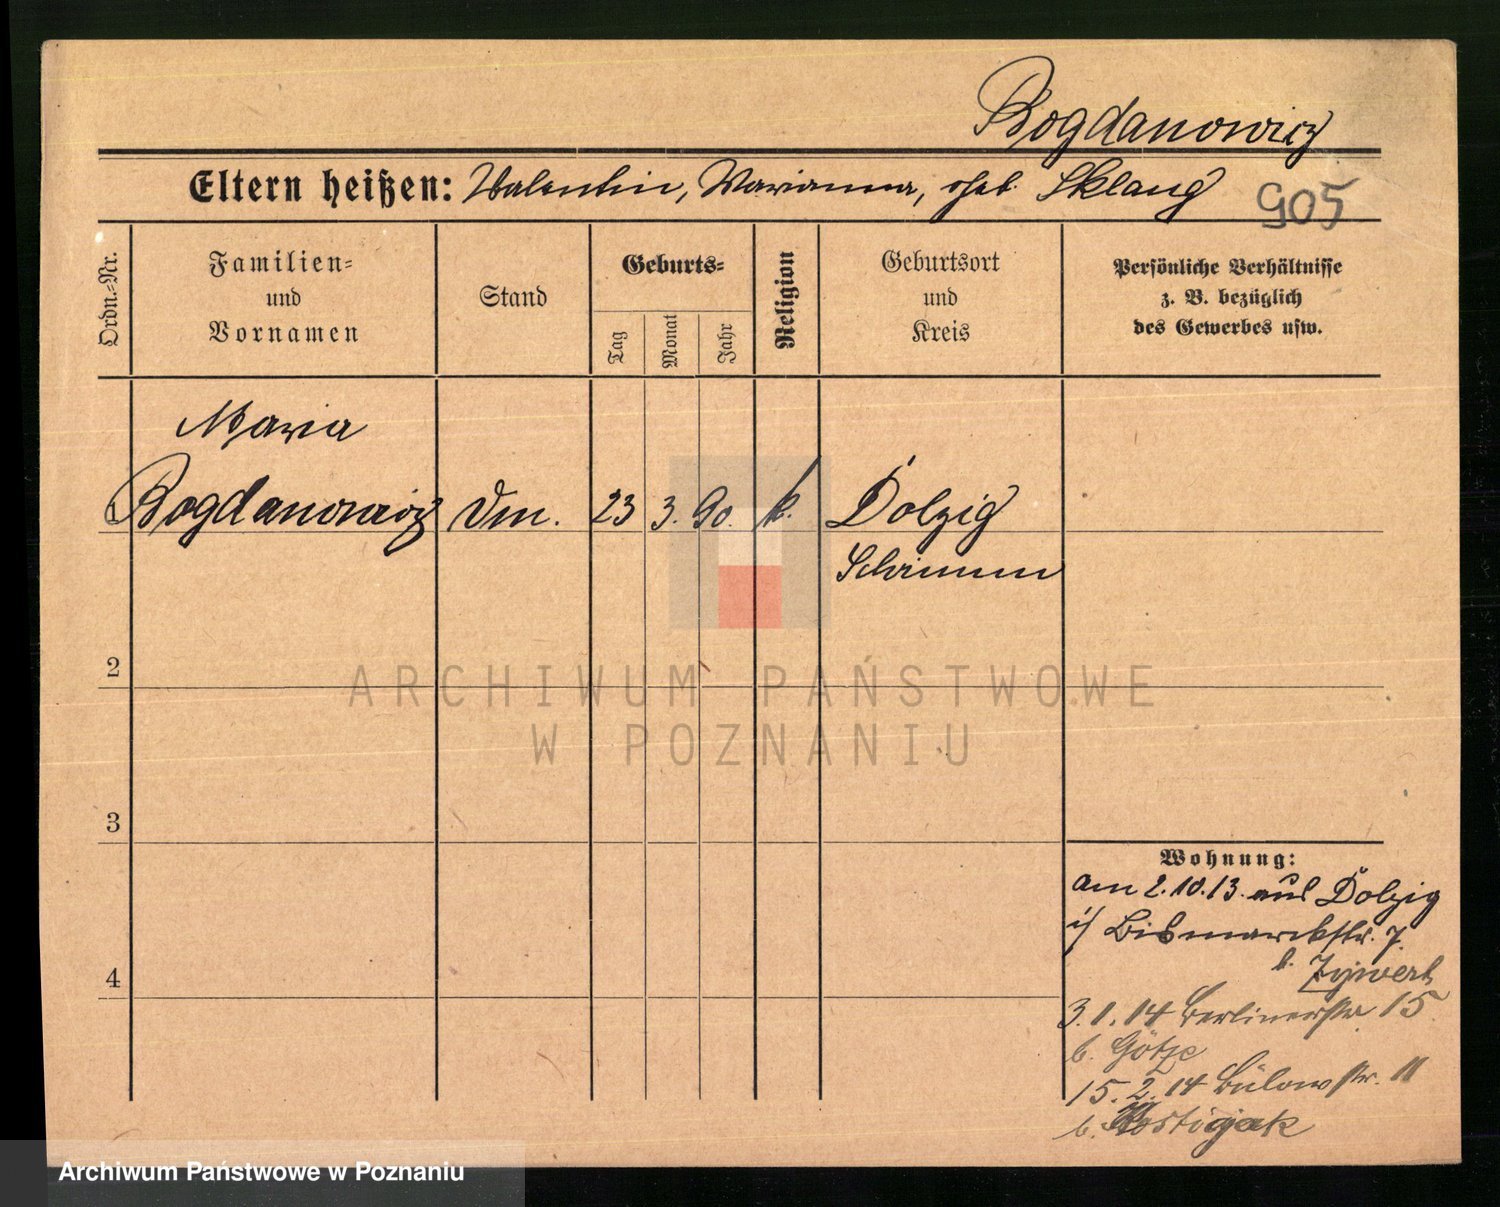 Bogdanowicz
Eltern heißen: Valentin, Marianna, geb. Sklang
905
Ordn.=Nr.
Familien=
und
Vornamen
Stand
Geburts=
Tag
Monat
Jahr
Religion
Geburtsort
und
Kreis
Persönliche Verhältnisse
z. B. bezüglich
des Gewerbes usw.
Maria
1 Bogdanowicz 23 3. 90. k. Dolzig
Schrimm
2
ARCHIWUM PAŃSTWOWE
W POZNANIU
3
4
Wohnung:
am 2.10.13. aus Dolzig
Bismarckstr. 7.
b. Zywert
3.1.14 Berlinerstr 15
b. Götze
15.2.14 Bülowstr. 11
b.
Archiwum Państwowe w Poznaniu